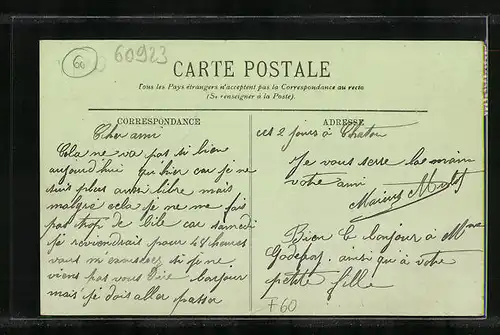 60
60923
CARTE POSTALE
Tous les Pays étrangers n'acceptent pas la Correspondance au recto
(Se renseigner à la Poste).
CORRESPONDANCE
ADRESSE
Cher ami
Cela ne va pas si bien
aujourd'hui qu'hier car je ne
suis plus aussi libre mais
malgré cela je ne me fais
pas trop de bile car samedi
je reviendrais pour 48 heures
vous m'excuserez si je ne
viens pas vous dire bonjour
mais je dois aller passer
ces 2 jours à Chatou
Je vous serre la main
votre ami
Marius
Bien le bonjour à Mme
ainsi qu'à votre
petite fille
F60